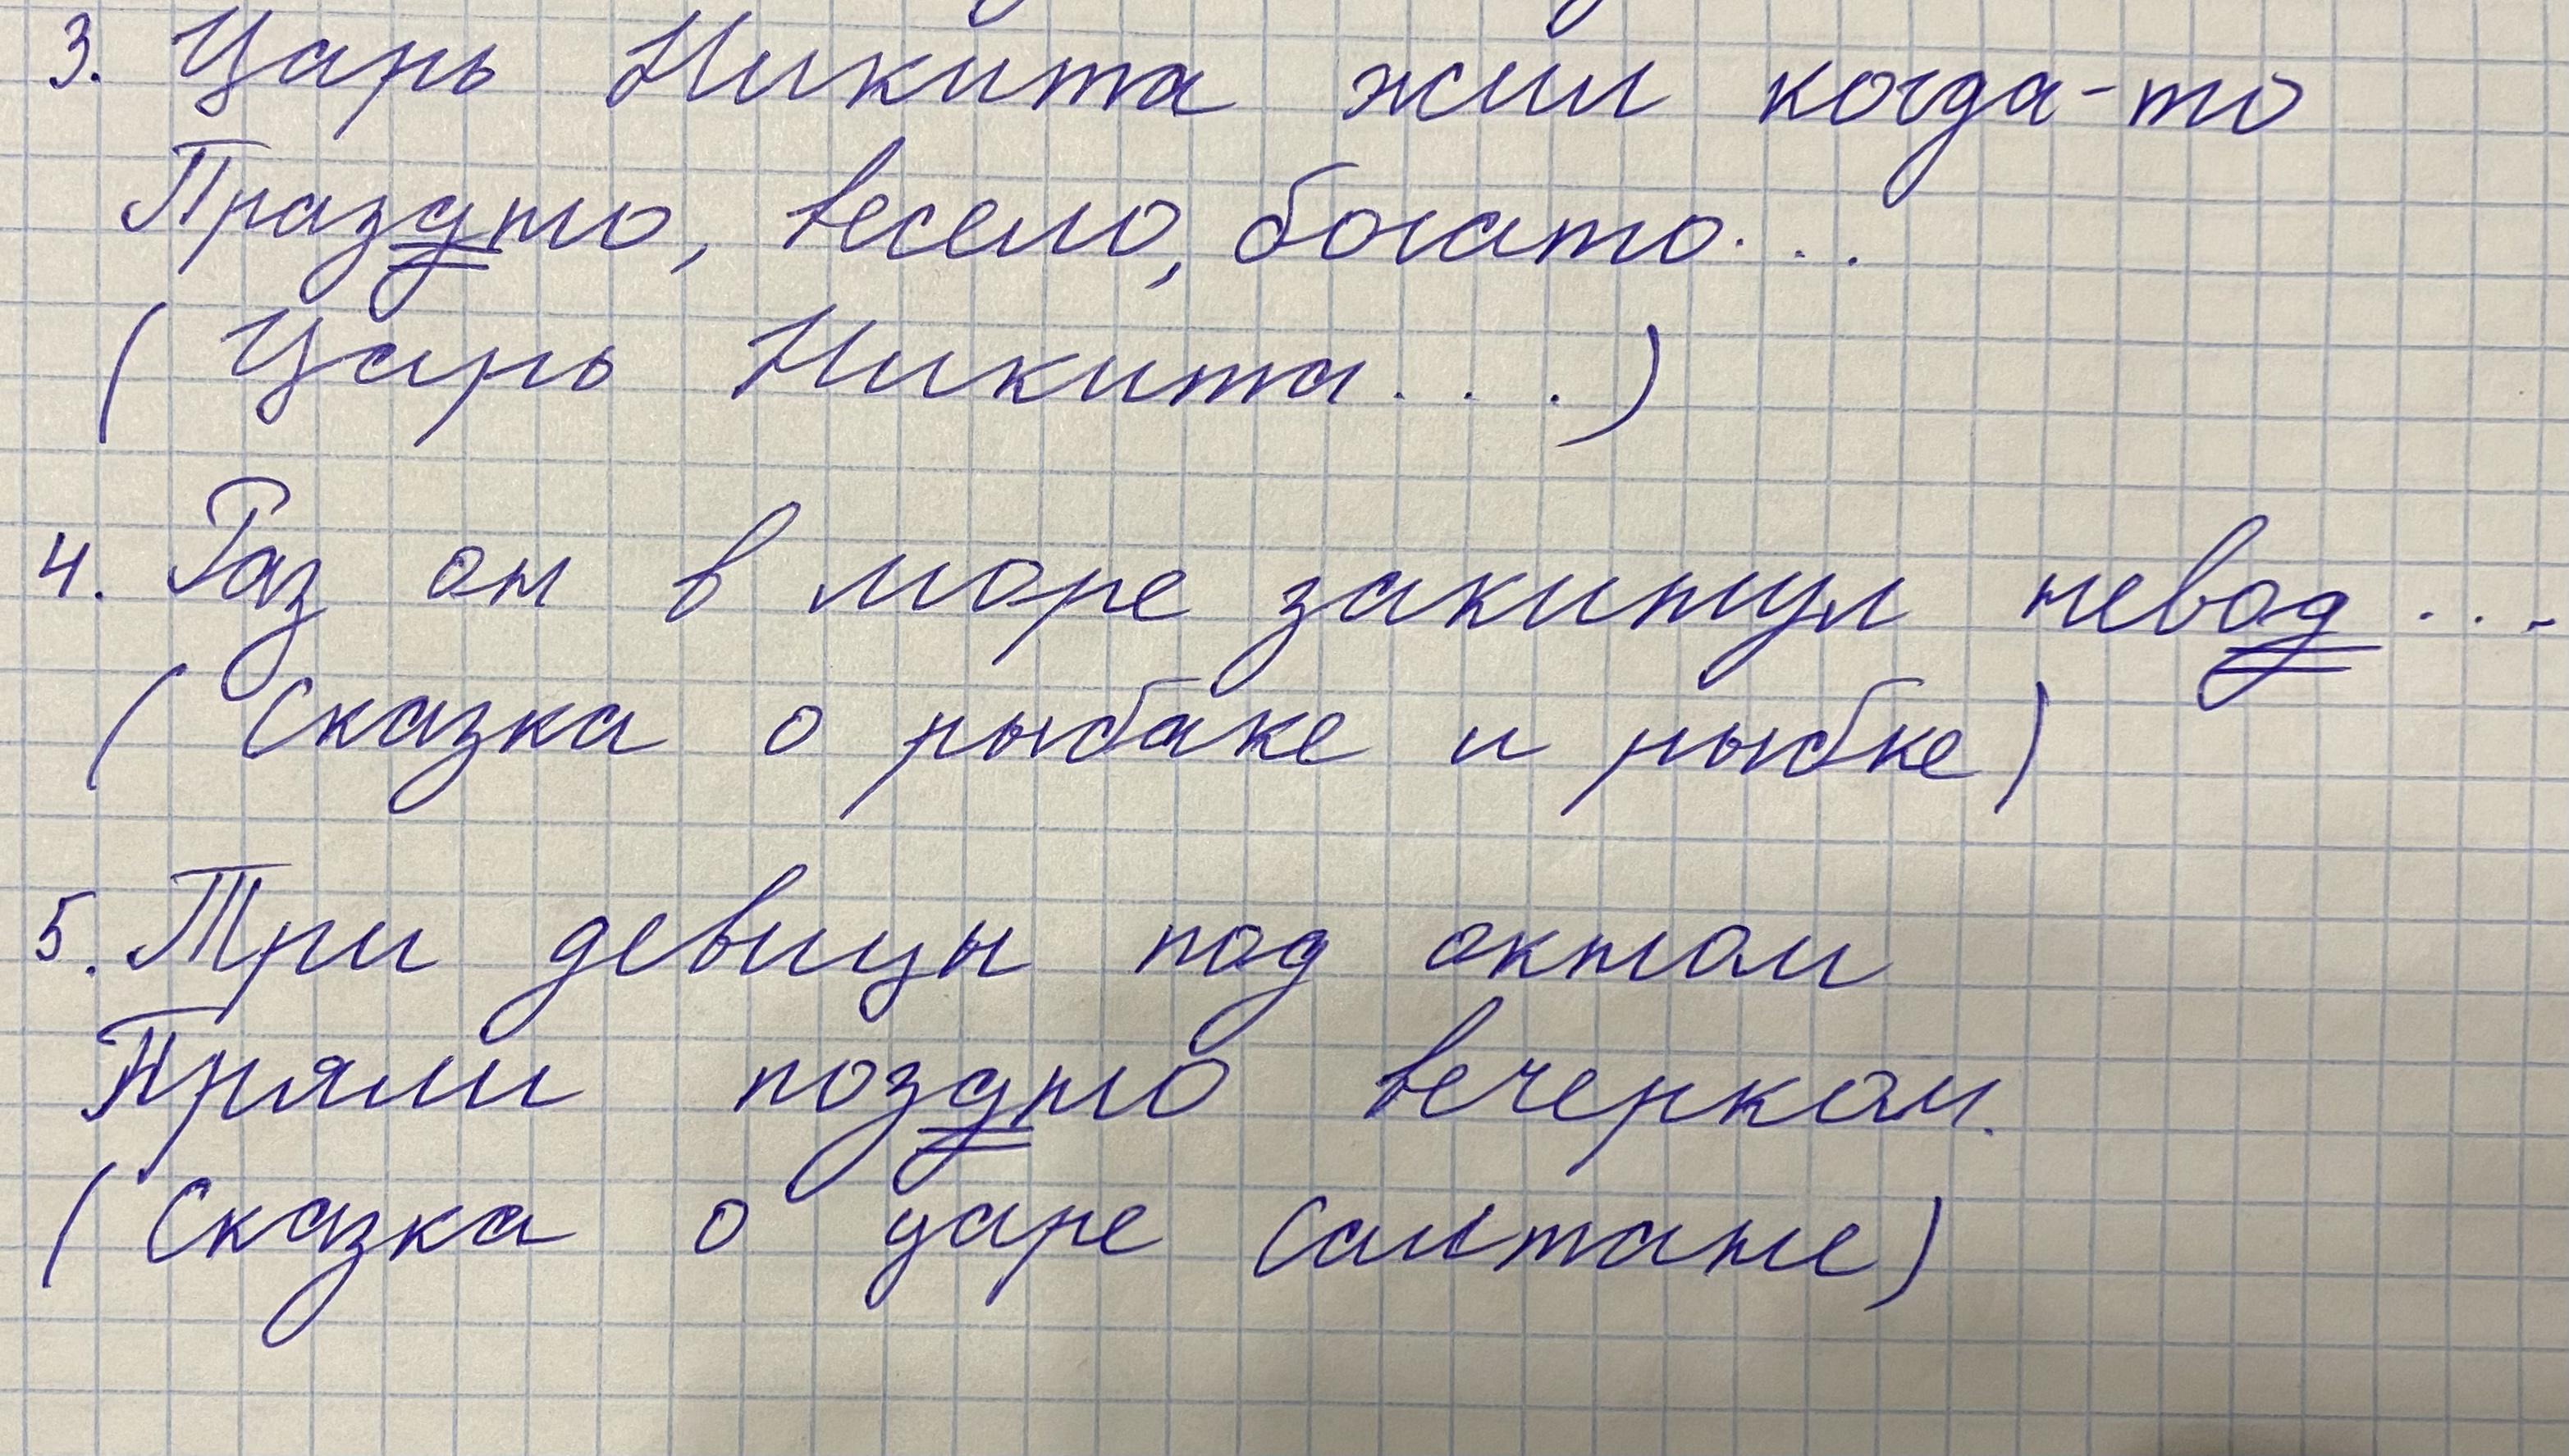 3. Царь Никита жил когда-то
Праздно, весело, богато...
(Царь Никита...)
4. Раз он в море закинул невод...
(Сказка о рыбаке и рыбке)
5. Три девицы под окном
Пряли поздно вечерком.
(Сказка о царе Салтане)